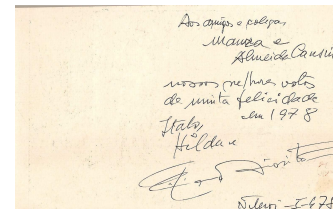 Aos amigos e colegas
Manoa e
Almeida
nossos melhores votos
de muita felicidade
em 1978
Italo,
Hilda e